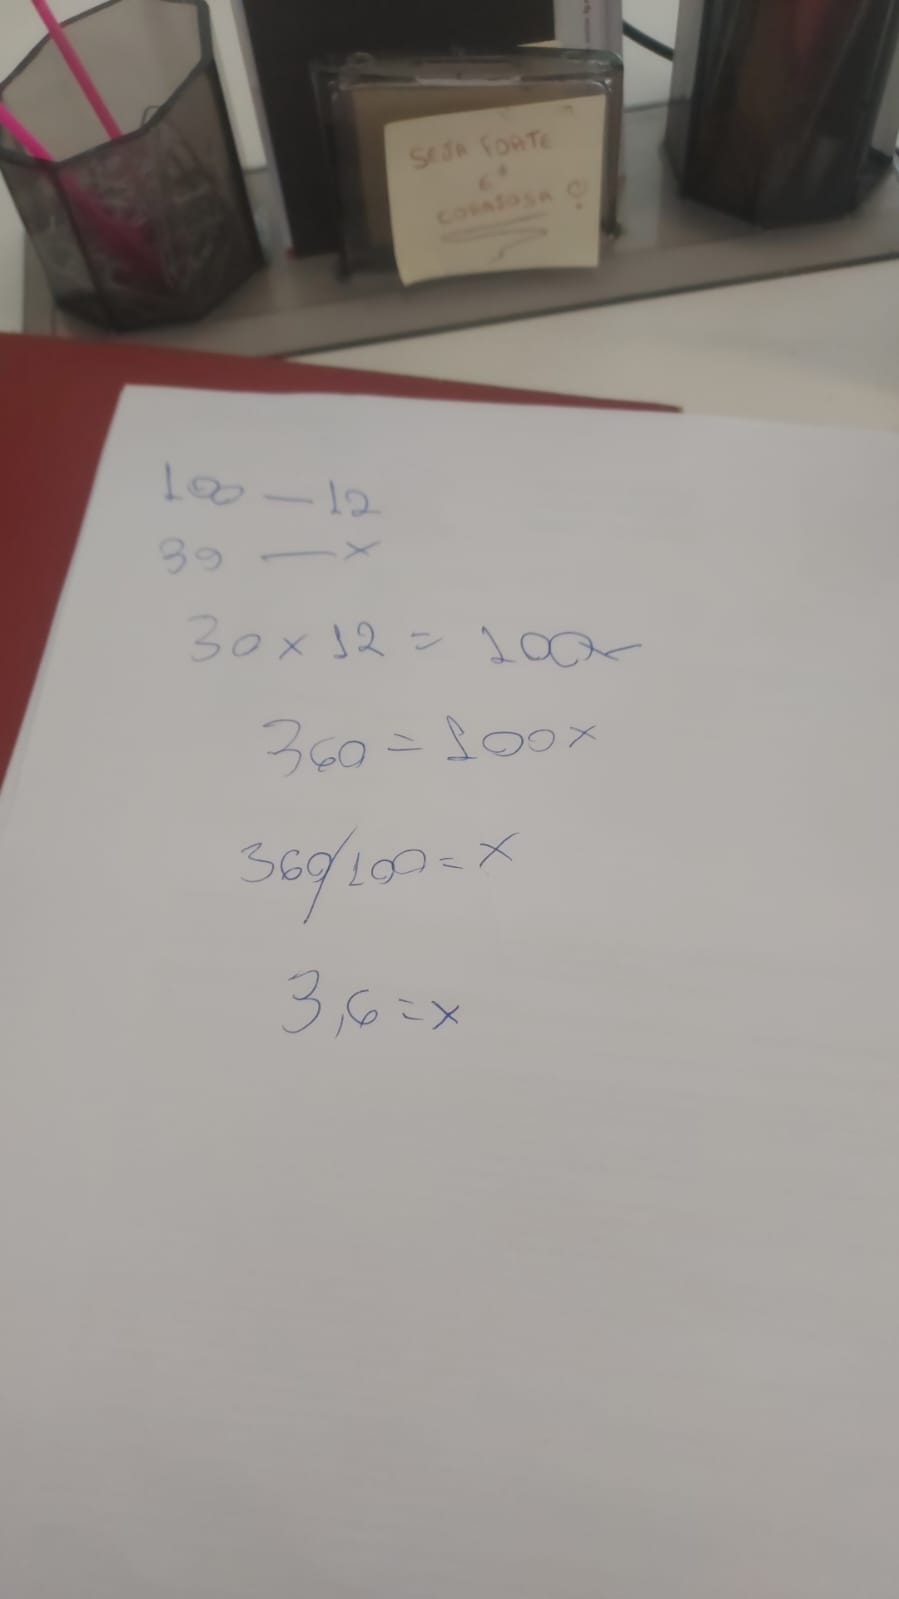 SEJA FORTE
E
CORAJOSA!
100 — 12
30 — x
30 x 12 = 100x
360 = 100x
360/100 = x
3,6 = x